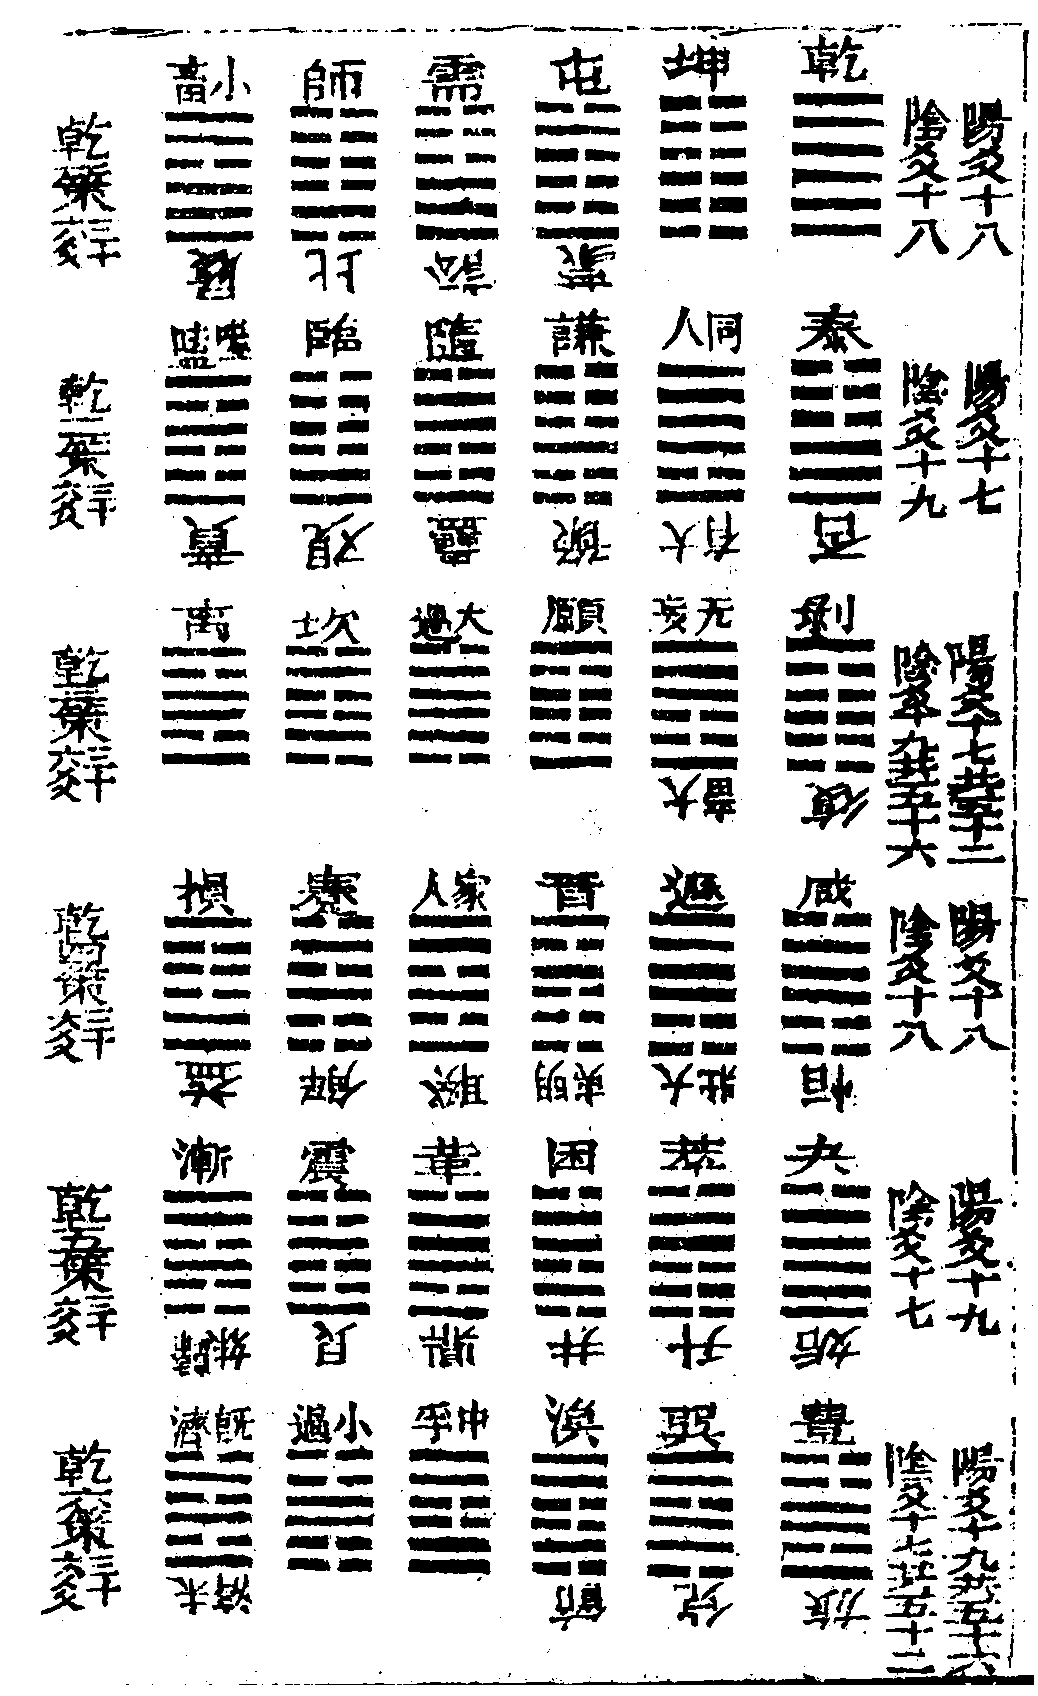 陽爻十八
陰爻十八
乾
坤
屯
蒙
需
訟
師
比
小畜
履
乾一策三十六爻
陽爻十七
陰爻十九
泰
否
同人
大有
謙
豫
隨
蠱
臨
觀
噬嗑
賁
乾二策三十六爻
陽爻十七共五十二
陰爻十九共五十六
剝
復
无妄
大畜
頤
大過
坎
離
乾三策三十六爻
陽爻十八
陰爻十八
咸
恒
遯
大壯
晉
明夷
家人
睽
蹇
解
損
益
乾四策三十六爻
陽爻十九
陰爻十七
夬
姤
萃
升
困
井
革
鼎
震
艮
漸
歸妹
乾五策三十六爻
陽爻十九共五十六
陰爻十七共五十二
豐
旅
巽
兌
渙
節
中孚
小過
既濟
未濟
乾六策三十六爻